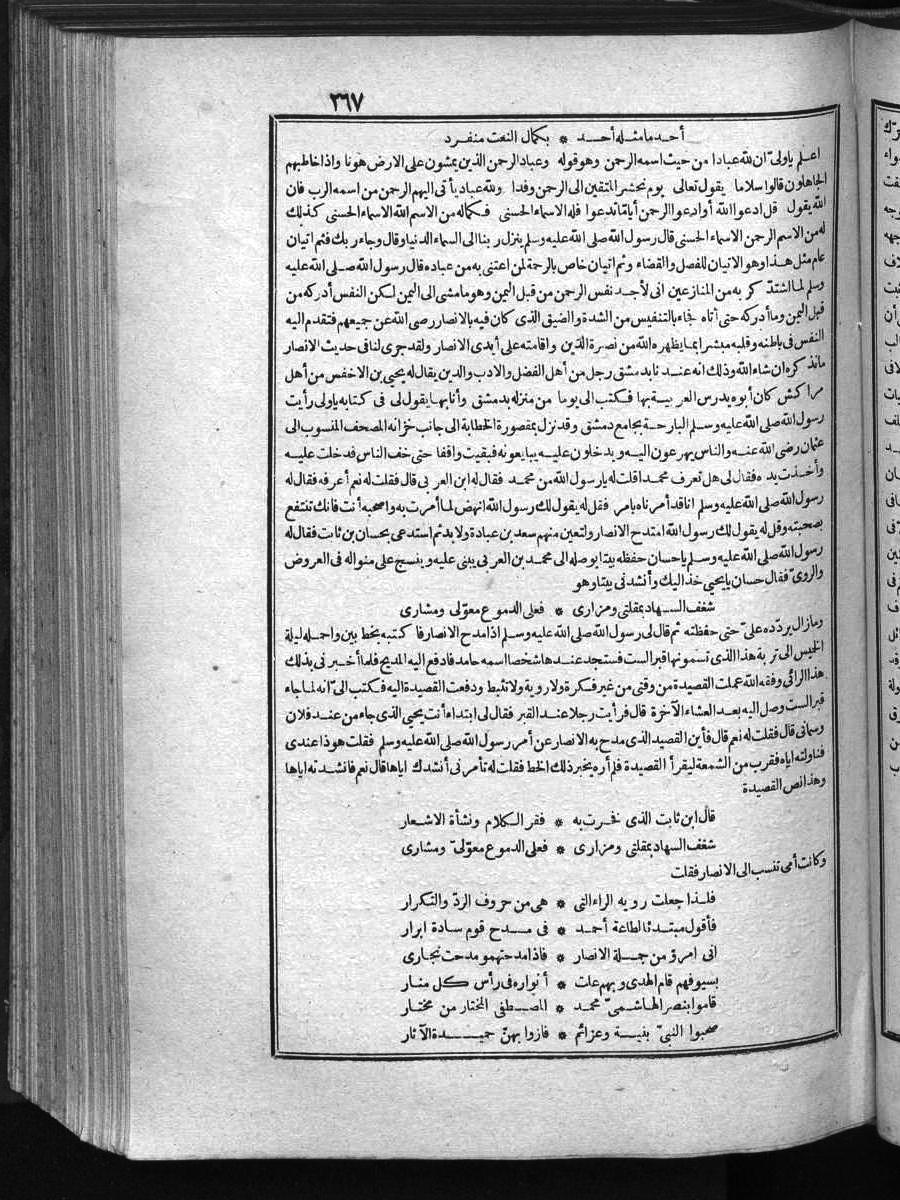 ٣٦٧
أحد ما مثله أحد * بكمال النعت منفرد
اعلم ياولىّ ان لله عبادا من حيث اسمه الرحمن وهو قوله وعباد الرحمن الذين يمشون على الارض هونا واذا خاطبهم
الجاهلون قالوا سلاما يقول تعالى يوم نحشر المتقين الى الرحمن وفدا ولله عباد يأتى اليهم الرحمن من اسمه الرب فان
الله يقول قل ادعوا الله أو ادعوا الرحمن أيا ما تدعوا فله الاسماء الحسنى فكماله من الاسم الله الاسماء الحسنى كذلك
له من الاسم الرحمن الاسماء الحسنى قال رسول الله صلى الله عليه وسلم ينزل ربنا الى السماء الدنيا وقال وجاء ربك فثم اتيان
عام مثل هذا وهو الاتيان للفصل والقضاء وثم اتيان خاص بالرحمة لمن اعتنى به من عباده قال رسول الله صلى الله عليه
وسلم لما اشتدّ كربه من المنازعين انى لأجد نفس الرحمن من قبل اليمن وهو ما مشى الى اليمن لكن النفس أدركه من
قبل اليمن وما أدركه حتى أتاه فجاء بالتنفيس من الشدة والضيق الذى كان فيه بالانصار رضى الله عن جميعهم فتقدم اليه
النفس فى باطنه وقلبه مبشرا بما يظهره الله من نصرة الدين واقامته على أيدى الانصار ولقد جرى لنا فى حديث الانصار
ما نذكره ان شاء الله وذلك انه عندنا بدمشق رجل من أهل الفضل والادب والدين يقال له يحيى بن الاخفس من أهل
مراكش كان أبوه يدرس العربية بها فكتب الى يوما من منزله بدمشق وأنا بها يقول لى فى كتابه ياولى رأيت
رسول الله صلى الله عليه وسلم البارحة بجامع دمشق وقد نزل بمقصورة الخطابة الى جانب خزانه المصحف المنسوب الى
عثمان رضى الله عنه والناس يهرعون اليه ويدخلون عليه يبايعونه فبقيت واقفا حتى خف الناس فدخلت عليه
وأخذت يده فقال لى هل تعرف محمدا قلت له يارسول الله من محمد فقال له ابن العربى قال فقلت له نعم أعرفه فقال له
رسول الله صلى الله عليه وسلم انا قد أمرناه بامر فقل له يقول لك رسول الله انهض لما أمرت به واصحبه أنت فانك تنتفع
بصحبته وقل له يقول لك رسول الله امتدح الانصار ولتعين منهم سعد بن عبادة ولا بد ثم استدعى بحسان بن ثابت فقال له
رسول الله صلى الله عليه وسلم ياحسان حفظه بيتا يوصله الى محمد بن العربى يبنى عليه وينسج على منواله فى العروض
والروىّ فقال حسان يايحيى خذ اليك وأنشدنى بيتا وهو
شغف السهاد بمقلتى ومزارى * فعلى الدموع معوّلى ومشارى
ومازال يردّده علىّ حتى حفظته ثم قال لى رسول الله صلى الله عليه وسلم اذا مدح الانصار فاكتبه بخط بين واحمله ليلة
الخيس الى تربة هذا الذى تسمونها قبر الست فستجد عندها شخصا اسمه حامد فادفع اليه المديح فلما أخبرنى بذلك
هذا الرائى وفقه الله عملت القصيدة من وقتى من غير فكرة ولا روية ولا تثبط ودفعت القصيدة اليه فكتب الىّ انه لما جاء
قبر الست وصل اليه بعد العشاء الآخرة قال فرأيت رجلا عند القبر فقال لى ابتداء أنت يحيى الذى جاء من عند فلان
وسمانى قال فقلت له نعم قال فأين القصيد الذى مدح به الانصار عن أمر رسول الله صلى الله عليه وسلم فقلت هو ذا عندى
فناولته اياه فقرب من الشمعة ليقرأ القصيدة فلم أره يخبر ذلك الخط فقلت له تأمرنى أنشدك اياها قال نعم فانشدته اياها
وهذا نص القصيدة
قال ابن ثابت الذى فخرت به * فقر الكلام ونشأة الاشعار
شغف السهاد بمقلتى ومزارى * فعلى الدموع معوّلىّ ومشارى
وكانت أمى تنسب الى الانصار فقلت
فلذا جعلت رويه الراء التى * هى من حروف الردّ والتكرار
فأقول مبتدئا لطاعة أحمد * فى مدح قوم سادة ابرار
انى امرؤ من جملة الانصار * فاذا مدحتهمو مدحت نجارى
بسيوفهم قام الهدى وبهم علت * أنواره فى رأس كل منار
قاموا بنصر الهاشمىّ محمد * المصطفى المختار من مختار
صحبوا النبىّ بنية وعزائم * فازوا بهنّ حميدة الآثار